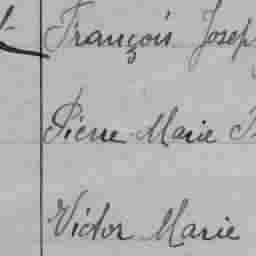 François Josep
Pierre Marie
Victor Marie